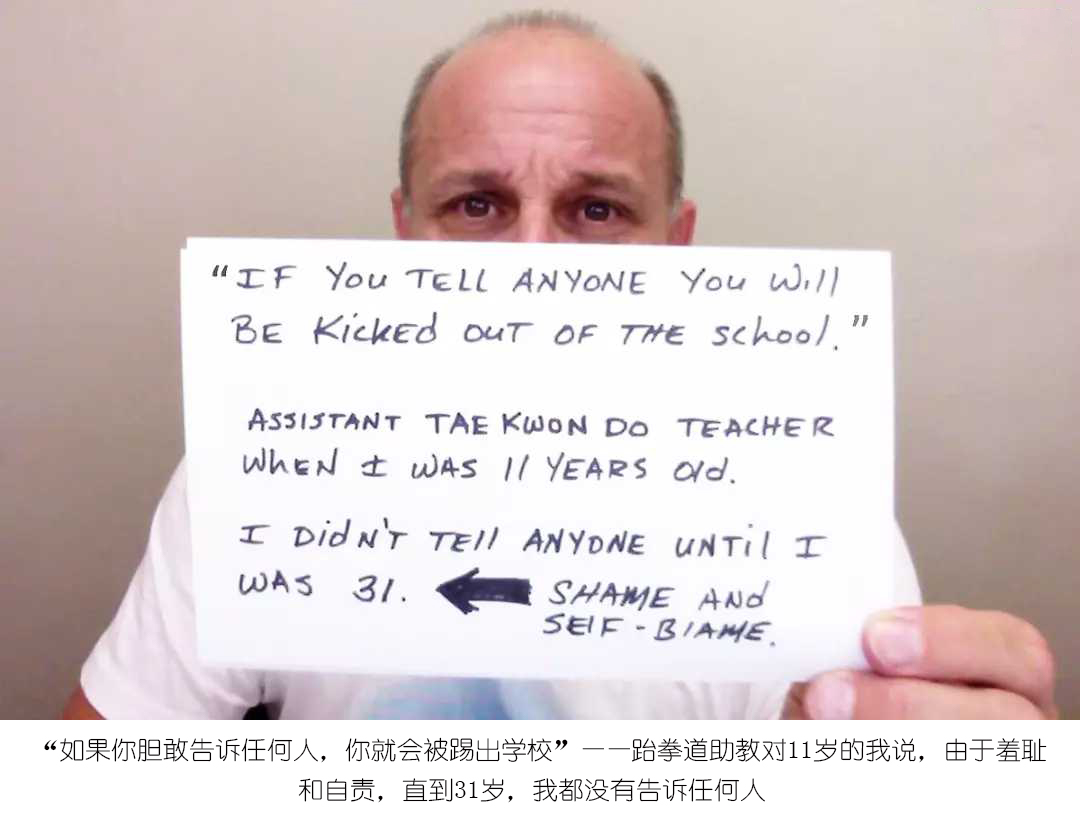 "IF You TELL ANYONE You Will
BE Kicked OUT OF THE School."
ASSISTANT TAE KWON DO TEACHER
WHEN I WAS 11 YEARS Old.
I DidN'T TEll ANYONE UNTil I
WAS 31. SHAME AND
SElF-BlAME.
“如果你胆敢告诉任何人，你就会被踢出学校”——跆拳道助教对11岁的我说，由于羞耻
和自责，直到31岁，我都没有告诉任何人